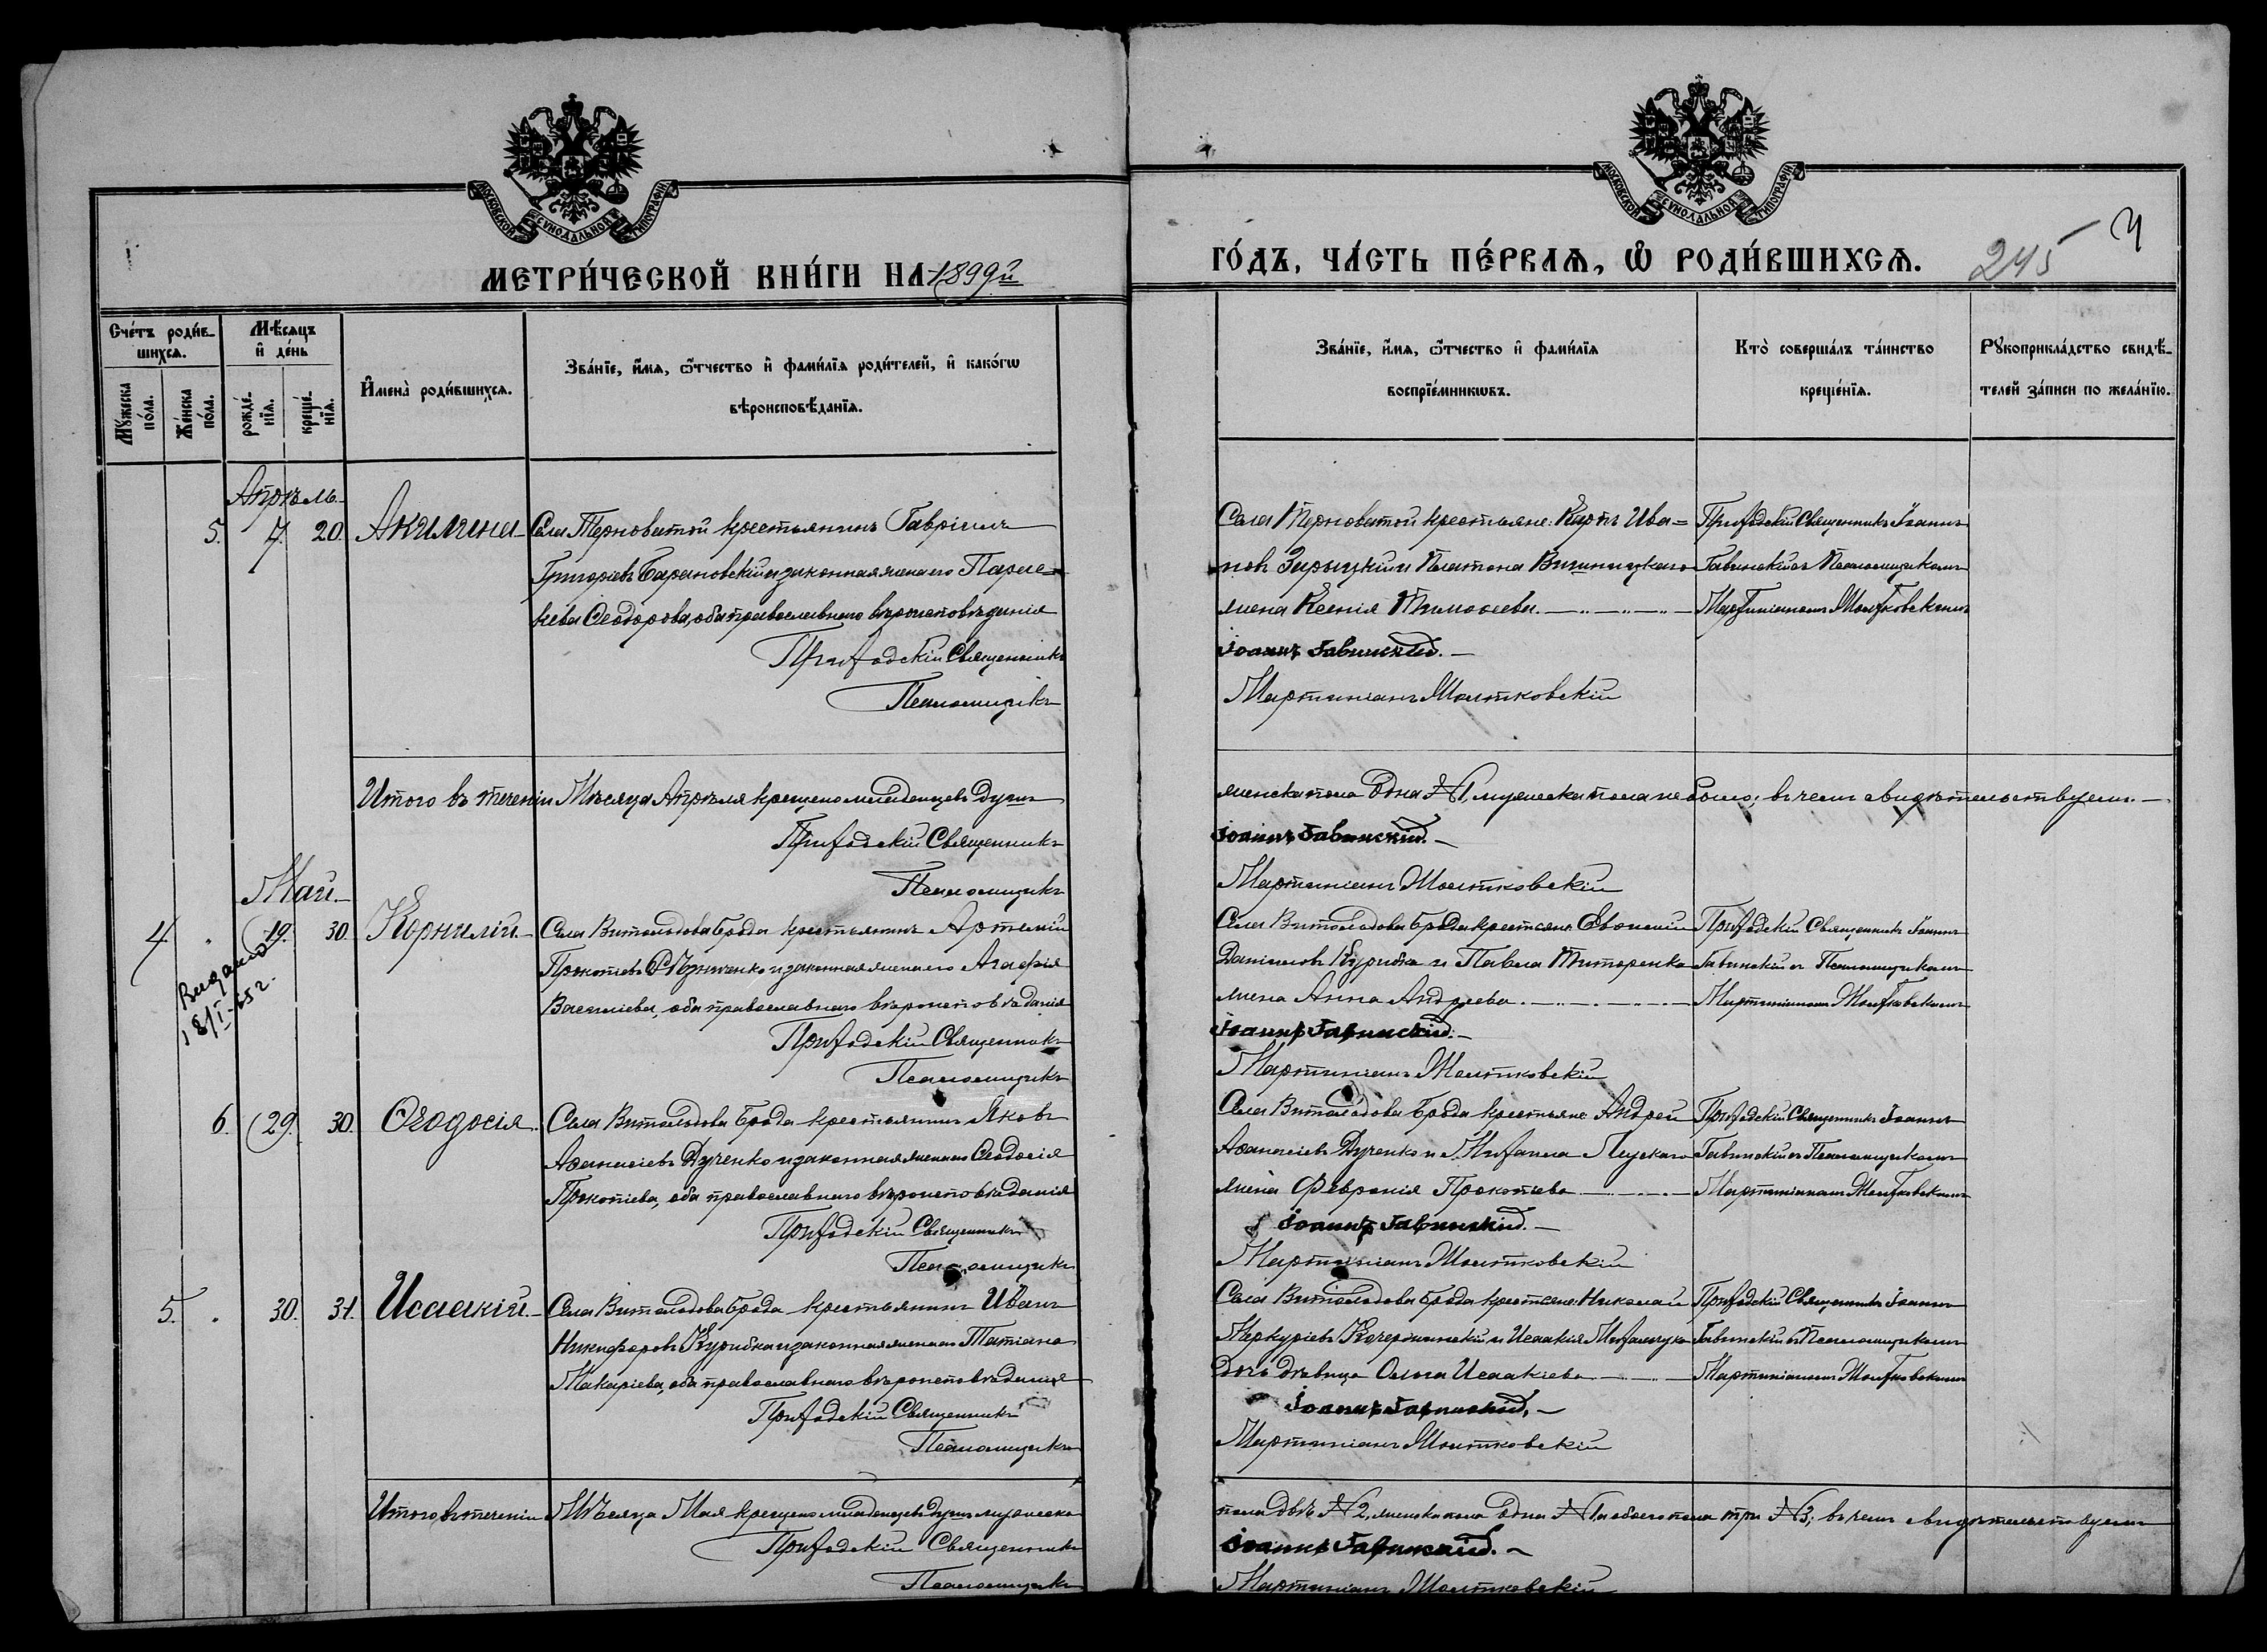 МОСКОВСКОЙ СѴНОДАЛЬНОЙ ТИПОГРАФІИ
МОСКОВСКОЙ СѴНОДАЛЬНОЙ ТИПОГРАФІИ
МЕТРИ́ЧЕСКОЙ КНИ́ГИ НА 1899й
ГО́ДЪ, ЧА́СТЬ ПЕ́РВАѦ, Ѡ҆ РОДИ́ВШИХСѦ. 245 4
Сче́тъ роди́в-
шихсѧ.
Мѣ́сѧцъ
и҆ де́нь
Мꙋ́жеска по́ла.
Же́нска по́ла.
рожде́-
нїѧ.
креще́-
нїѧ.
И҆мена̀ роди́вшихсѧ.
Зва́нїе, и҆́мѧ, ѻ҆́тчество и҆ фами́лїѧ роди́телей, и҆ како́гѡ
вѣроисповѣ́данїѧ.
Зва́нїе, и҆́мѧ, ѻ҆́тчество и҆ фами́лїѧ
воспрїе́мникѡвъ.
Кто̀ соверша́лъ та́инство
креще́нїѧ.
Рꙋкоприкла́дство свидѣ́-
телей за́писи по жела́нїю.
Апрѣль.
5. 7. 20. Акилина Села Терноватой крестьянинъ Гавріилъ
Григоріевъ Барановскій и законная жена его Параске-
ева Ѳеодорова, оба православнаго вѣроисповѣданія
Приходскій Священникъ
Псаломщикъ
Села Терноватой крестьяне: Карпъ Ива=
новъ Зарыцкій и Платона Вишницкаго
жена Ксенія Тимоѳеева.
Іоаннъ Гавинскій.
Мартиніанъ Жолтковскій
Приходскій Священникъ Іоаннъ
Гавинскій съ Псаломщикомъ
Мартиніаномъ Жолтковскимъ
Итого въ теченіи Мѣсяца Апрѣля крещено младенцевъ душъ
Приходскій Священникъ
Псаломщикъ
женска пола одна №1, мужеска пола не было; въ чемъ свидѣтельствуемъ.
Іоаннъ Гавинскій.
Мартиніанъ Жолтковскій
Май.
4. " 19. 30. Корнилій. Села Витольдова Брода крестьянинъ Артемій
Прокопіевъ Рѣзниченко и законная жена его Агафія
Василіева, оба православнаго вѣроисповѣданія
Приходскій Священникъ
Псаломщикъ
Видано
18/I-65 г.
Села Витольдова Брода крестьяне Евѳимій
Даніиловъ Курибка и Павла Титаренка
жена Анна Андреева.
Іоаннъ Гавинскій.
Мартиніанъ Жолтковскій
Приходскій Священникъ Іоаннъ
Гавинскій съ Псаломщикомъ
Мартиніаномъ Жолтковскимъ
6. 29. 30. Ѳеодосія. Села Витольдова Брода крестьянинъ Яковъ
Аѳанасіевъ Дученко и законная жена его Ѳеодосія
Прокопіева, оба православнаго вѣроисповѣданія
Приходскій Священникъ
Псаломщикъ
Села Витольдова Брода крестьяне Андрей
Аѳанасіевъ Дученко и Михаила Луцкаго
жена Февронія Прокопіева
Іоаннъ Гавинскій.
Мартиніанъ Жолтковскій
Приходскій Священникъ Іоаннъ
Гавинскій съ Псаломщикомъ
Мартиніаномъ Жолтковскимъ
5. " 30. 31. Исаакій. Села Витольдова Брода крестьянинъ Иванъ
Никифоровъ Курибка и законная жена его Татіана
Макаріева, оба православнаго вѣроисповѣданія
Приходскій Священникъ
Псаломщикъ
Села Витольдова Брода крестьяне Николай
Меркуріевъ Кочержинскій и Исаакія Михальчука
дочь дѣвица Ольга Исаакіева
Іоаннъ Гавинскій.
Мартиніанъ Жолтковскій
Приходскій Священникъ Іоаннъ
Гавинскій съ Псаломщикомъ
Мартиніаномъ Жолтковскимъ
Итого въ теченіи Мѣсяца Мая крещено младенцевъ душъ мужеска
Приходскій Священникъ
Псаломщикъ
пола двѣ №2, женска пола одна №1 а обоего пола три №3; въ чемъ свидѣтельствуемъ
Іоаннъ Гавинскій.
Мартиніанъ Жолтковскій